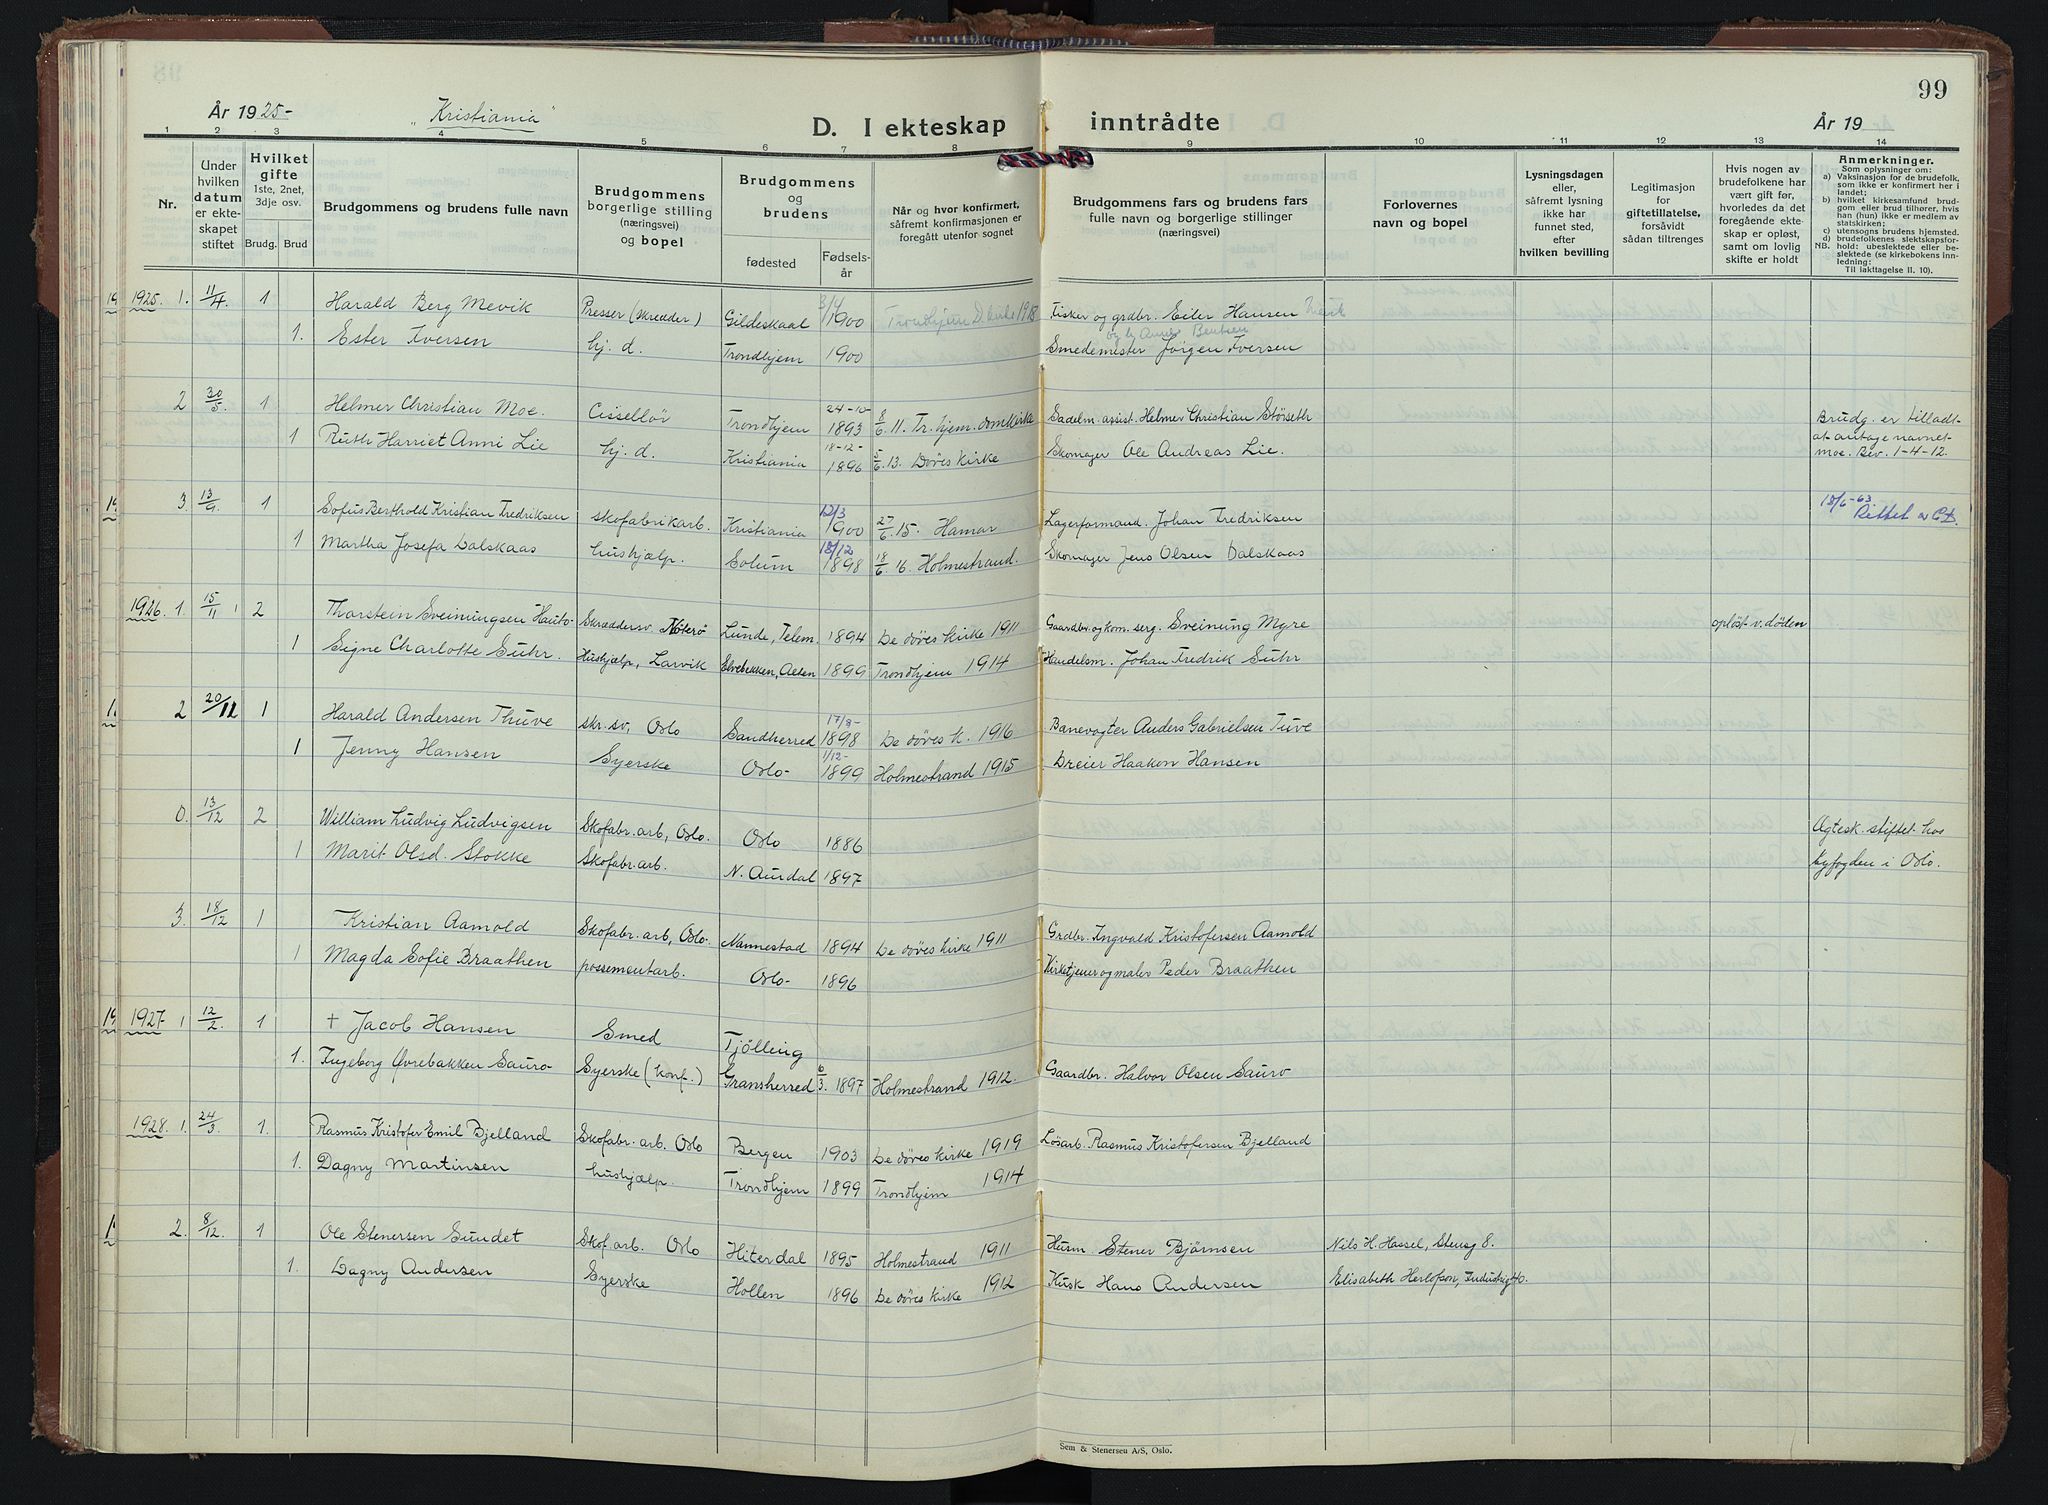 99
År 1925- "Kristiania" D. I ekteskap inntrådte År 19
1 2 3 4 5 6 7 8 9 10 11 12 13 14
Nr.
Under hvilken datum er ekteskapet stiftet
Hvilket gifte 1ste, 2net, 3dje osv.
Brudg. Brud
Brudgommens og brudens fulle navn
Brudgommens borgerlige stilling (næringsvei) og bopel
Brudgommens og brudens
fødested
Fødselsår
Når og hvor konfirmert, såfremt konfirmasjonen er foregått utenfor sognet
Brudgommens fars og brudens fars fulle navn og borgerlige stillinger (næringsvei)
Forlovernes navn og bopel
Lysningsdagen eller, såfremt lysning ikke har funnet sted, efter hvilken bevilling
Legitimasjon for giftetillatelse, forsåvidt sådan tiltrenges
Hvis nogen av brudefolkene har vært gift før, hvorledes da det foregående ekteskap er opløst, samt om lovlig skifte er holdt
Anmerkninger.
Som oplysning om:
a) Vaksinasjon for de brudefolk, som ikke er konfirmert her i landet;
b) hvilket kirkesamfund brudgom eller brud tilhører, hvis han (hun) ikke er medlem av statskirken;
c) utensogns brudens hjemsted.
d) brudefolkenes slektskapsforhold: ubeslektede eller beslektede (se kirkebokens innledning:
NB.
Til iakttagelse II. 10).
1925. 1. 11/4. 1 Harald Berg Mevik Presser (skrædder) Gildeskaal 3/4 1900 Trondhjem D.kirke 1918 Fisker og grdbr. Eiler Hansen
1. Ester Iversen hj. d. Trondhjem 1900 Smedemester Jörgen Iversen
2 30/5. 1 Helmer Christian Moe. Cisellør Trondhjem 24-10- 1893 8/6. 11. Tr.hjem. domkirke Sadelm. assist. Helmer Christian Störseth Brudg. er tilladt
at antage navnet
Moe. Bev. 1-4-12.
1 Ruth Harriet Anni Lie hj. d. Kristiania 18-12- 1896 5/6. 13. Döves kirke Skomager Ole Andreas Lie.
3. 13/9. 1 Sofus Berthold Kristian Fredriksen skofabrikarb. Kristiania 12/3 1900 27/6. 15. Hamar Lagerformand. Johan Fredriksen 18/6-63 Rettet
1 Martha Josefa Dalskaas hushjælp. Solum 18/12 1898 18/6. 16. Holmestrand. Skomager Jens Olsen Dalskaas
1926. 1. 15/11 2 Thorstein Sveinungsen Hauto- Skræddersv. Nøterö Lunde, Telem. 1894 De döves kirke 1911 Gaardbr. og kom. serg. Sveinung Myre opløst v. døden
1 Signe Charlotte Suhr. Hushjælp, Larvik Elvebakken, Alten 1899 Trondhjem 1914 Handelsm. Johan Fredrik Suhr
2 20/11 1 Harald Andersen Thuve skr. sv. Oslo Sandherred 17/8- 1898 De döves k. 1916 Banevogter Anders Gabrielsen Tuve
1 Jenny Hansen Syerske Oslo- 1/12- 1899 Holmestrand 1915 Dreier Haakon Hansen
0. 13/12 2 William Ludvig Ludvigsen Skofabr. arb, Oslo. Oslo 1886 Ægtesk. stiftet hos
1 Marit Olsd. Stokke Skofabr. arb. N. Aurdal 1897 byfogden i Oslo.
3. 18/12 1 Kristian Aamold Skofabr. arb, Oslo. Nannestad 1894 De döves kirke 1911 Grdbr. Ingvald Kristofersen Aamold
1 Magda Sofie Braathen possementarb. Oslo- 1896 Kirketjener og maler Peder Braathen
1927 1 12/2. 1 + Jacob Hansen Smed Tjölling
1. Ingeborg Øvrebakken Sauro- Syerske (konf.) Gransherred 6/3. 1897 Holmestrand 1912. Gaardbr. Halvor Olsen Sauro
1928. 1. 24/3 1. Rasmus Kristofer Emil Bjelland Skofabr. arb. Oslo Bergen 1903 De döves kirke 1919 Løsarb. Rasmus Kristofersen Bjelland
1. Dagny Martinsen hushjælp. Trondhjem 1899 Trondhjem 1914
2. 8/12. 1 Ole Stenersen Sundet Skof. arb. Oslo Hiterdal 1895 Holmestrand 1911 Husm. Stener Björnsen Nils H. Hassel, Stensg 8.
1. Dagny Andersen Syerske Hollen 1896 De döves kirke 1912 Kusk Hans Andersen Elisabeth Herlofson,
Sem & Stenersen A/S, Oslo.